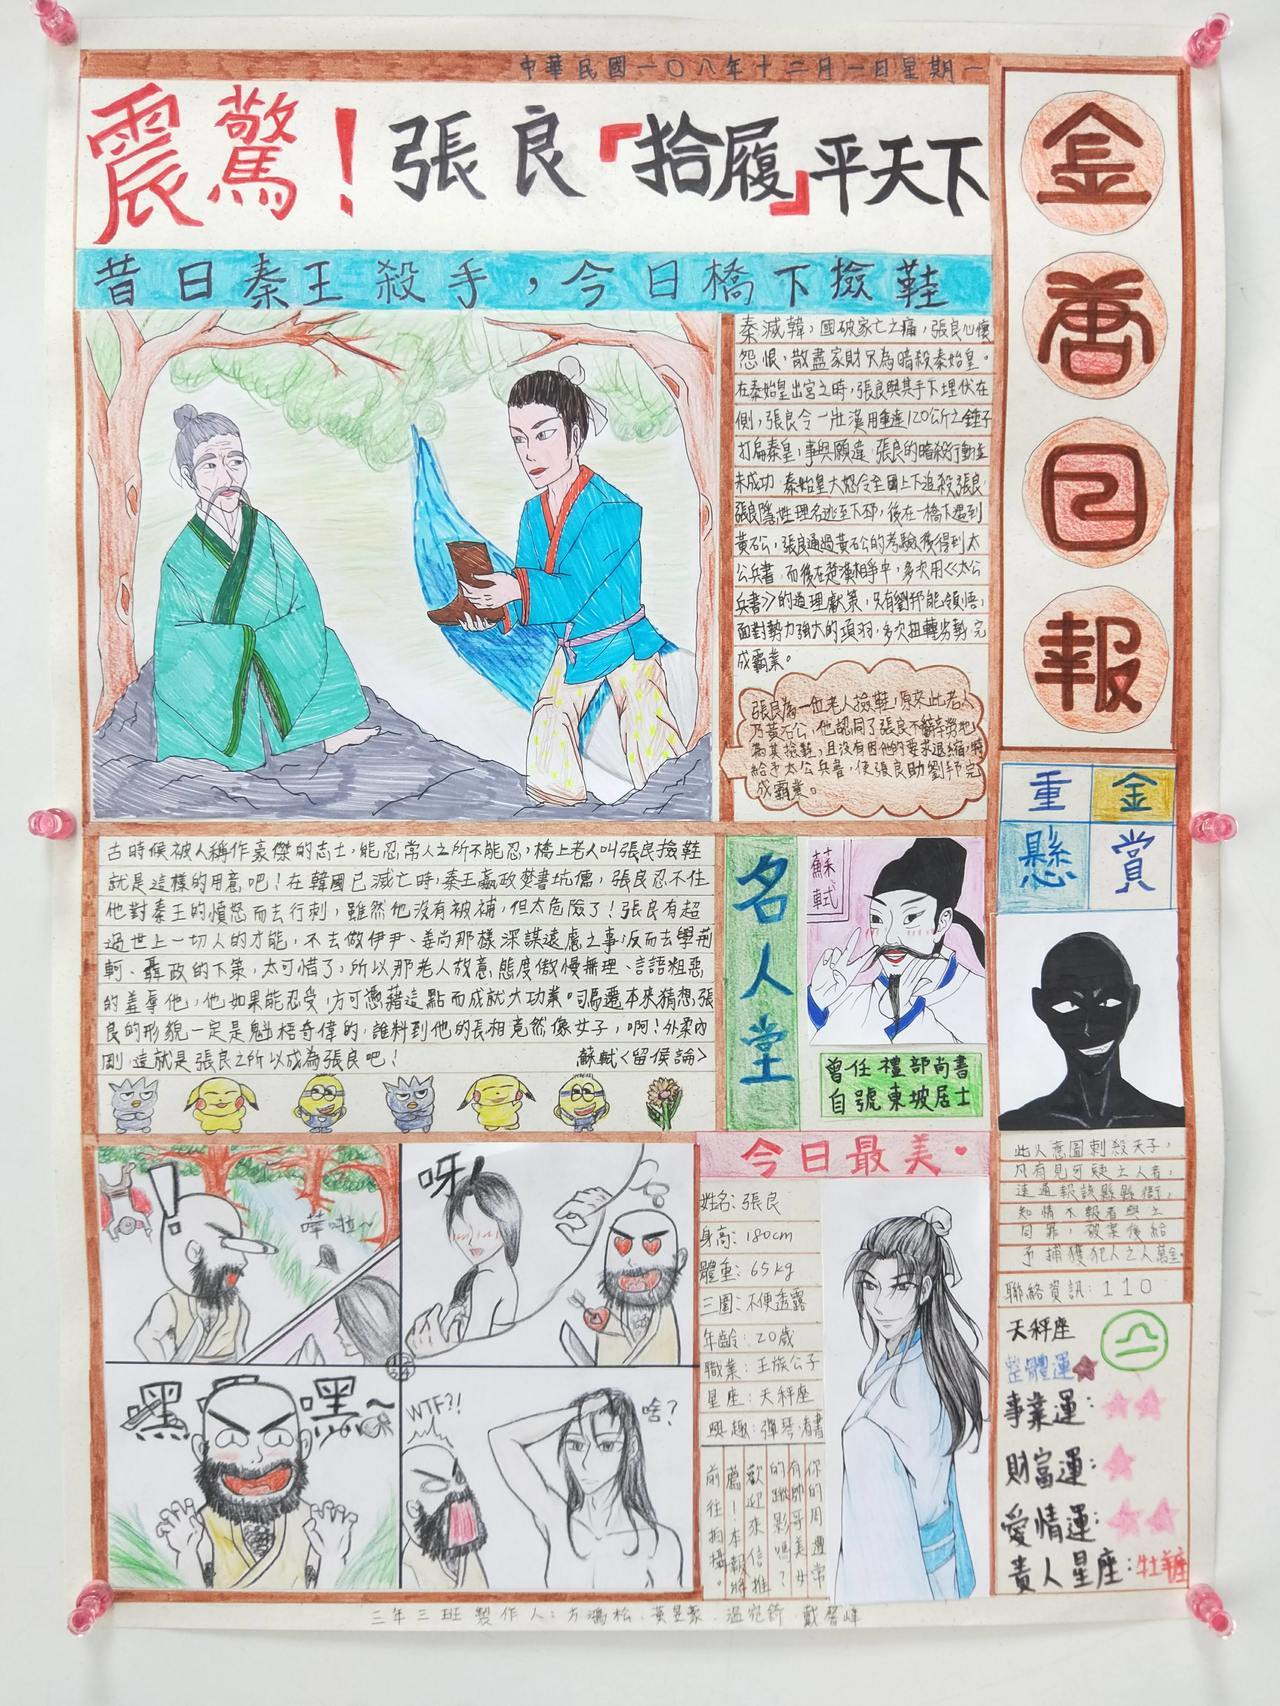 中華民國一〇八年十二月一日星期一
震驚！張良「拾履」平天下
昔日秦王殺手，今日橋下撿鞋
金善日報
秦滅韓，國破家亡之痛，張良心懷
怨恨，散盡家財只為暗殺秦始皇。
在秦始皇出宮之時，張良與其手下埋伏在
側，張良令一壯漢用重達120公斤之錘子
打扁秦皇，事與願違，張良的暗殺行動並
未成功，秦始皇大怒令全國上下追殺張良，
張良隱姓埋名逃至下邳，後在一橋下遇到
黃石公，張良通過黃石公的考驗後得到太
公兵書，而後在楚漢相爭中，多次用《太公
兵書》的道理獻策，只有劉邦能領悟，
面對勢力強大的項羽，多次扭轉劣勢完
成霸業。
張良為一位老人撿鞋，原來此老人
乃黃石公，他認同了張良不辭辛勞地
為其撿鞋，且沒有因他的要求退縮，特
給予太公兵書，使張良助劉邦完
成霸業。
重金
懸賞
古時候被人稱作豪傑的志士，能忍常人之所不能忍，橋上老人叫張良撿鞋
就是這樣的用意吧！在韓國已滅亡時，秦王嬴政焚書坑儒，張良忍不住
他對秦王的憤怒而去行刺，雖然他沒有被補，但太危險了！張良有超
過世上一切人的才能，不去做伊尹、姜尚那樣深謀遠慮之事，反而去學荊
軻、聶政的下策，太可惜了，所以那老人故意態度傲慢無理、言語粗惡
的羞辱他，他如果能忍受，方可憑藉這點而成就大功業。司馬遷本來猜想，張
良的形貌一定是魁梧奇偉的，誰料到他的長相竟然像女子，啊！外柔內
剛，這就是張良之所以成為張良吧！
蘇軾〈留侯論〉
名人堂
蘇軾
曾任禮部尚書
自號東坡居士
此人意圖刺殺天子，
凡有見可疑之人者，
速通報該縣縣衙，
知情不報者與之
同罪，破案後給
予捕獲犯人之人萬金。
聯絡資訊：110
嘩啦~
呀
嘿 嘿~
WTF?!
啥？
今日最美
姓名：張良
身高：180cm
體重：65kg
三圍：不便透露
年齡：20歲
職業：王族公子
星座：天秤座
興趣：彈琴、看書
你的周遭常
有帥哥美女
的蹤影嗎？
歡迎來信推
薦！本報將
前往拍攝。
天秤座
整體運
事業運：
財富運：
愛情運：
貴人星座：牡羊座
三年三班 製作人：方鴻松、黃昱豪、溫宛舒、戴啓峰